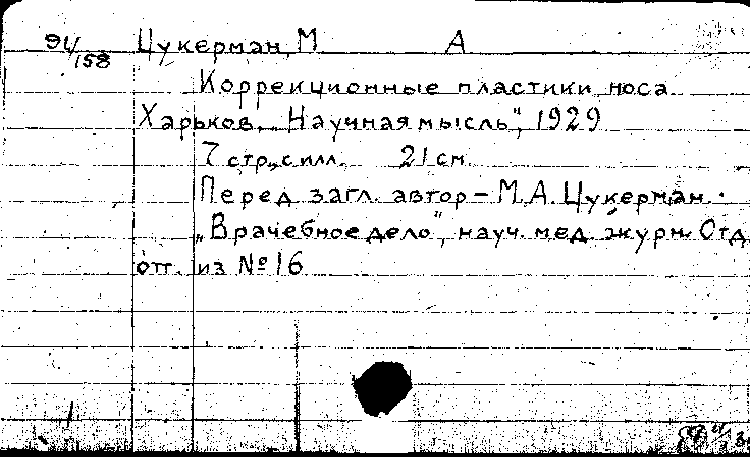 91/158 Цукерман, М А
Коррекционные пластики носа
Харьков, „Научная мысль", 1929
7 стр., с илл. 21 см
Перед загл. автор – М.А. Цукерман.
„Врачебное дело", науч. мед. журн. Отд.
отт. из №16